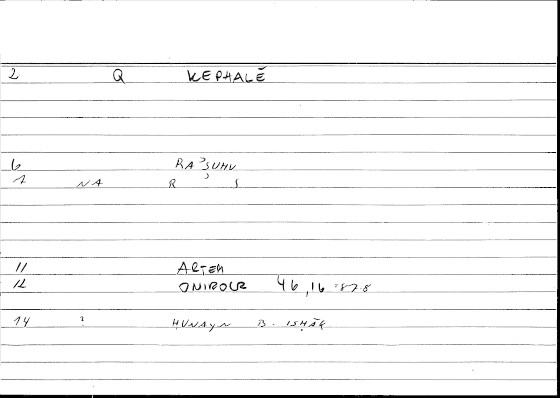 2 Q KEPHALĒ
6 RAʾSUHU
1 NA R ʾ S
11 ARTEM
12 ONIROCR 46,16
14 ? ḤUNAYN B. ISḤĀḲ